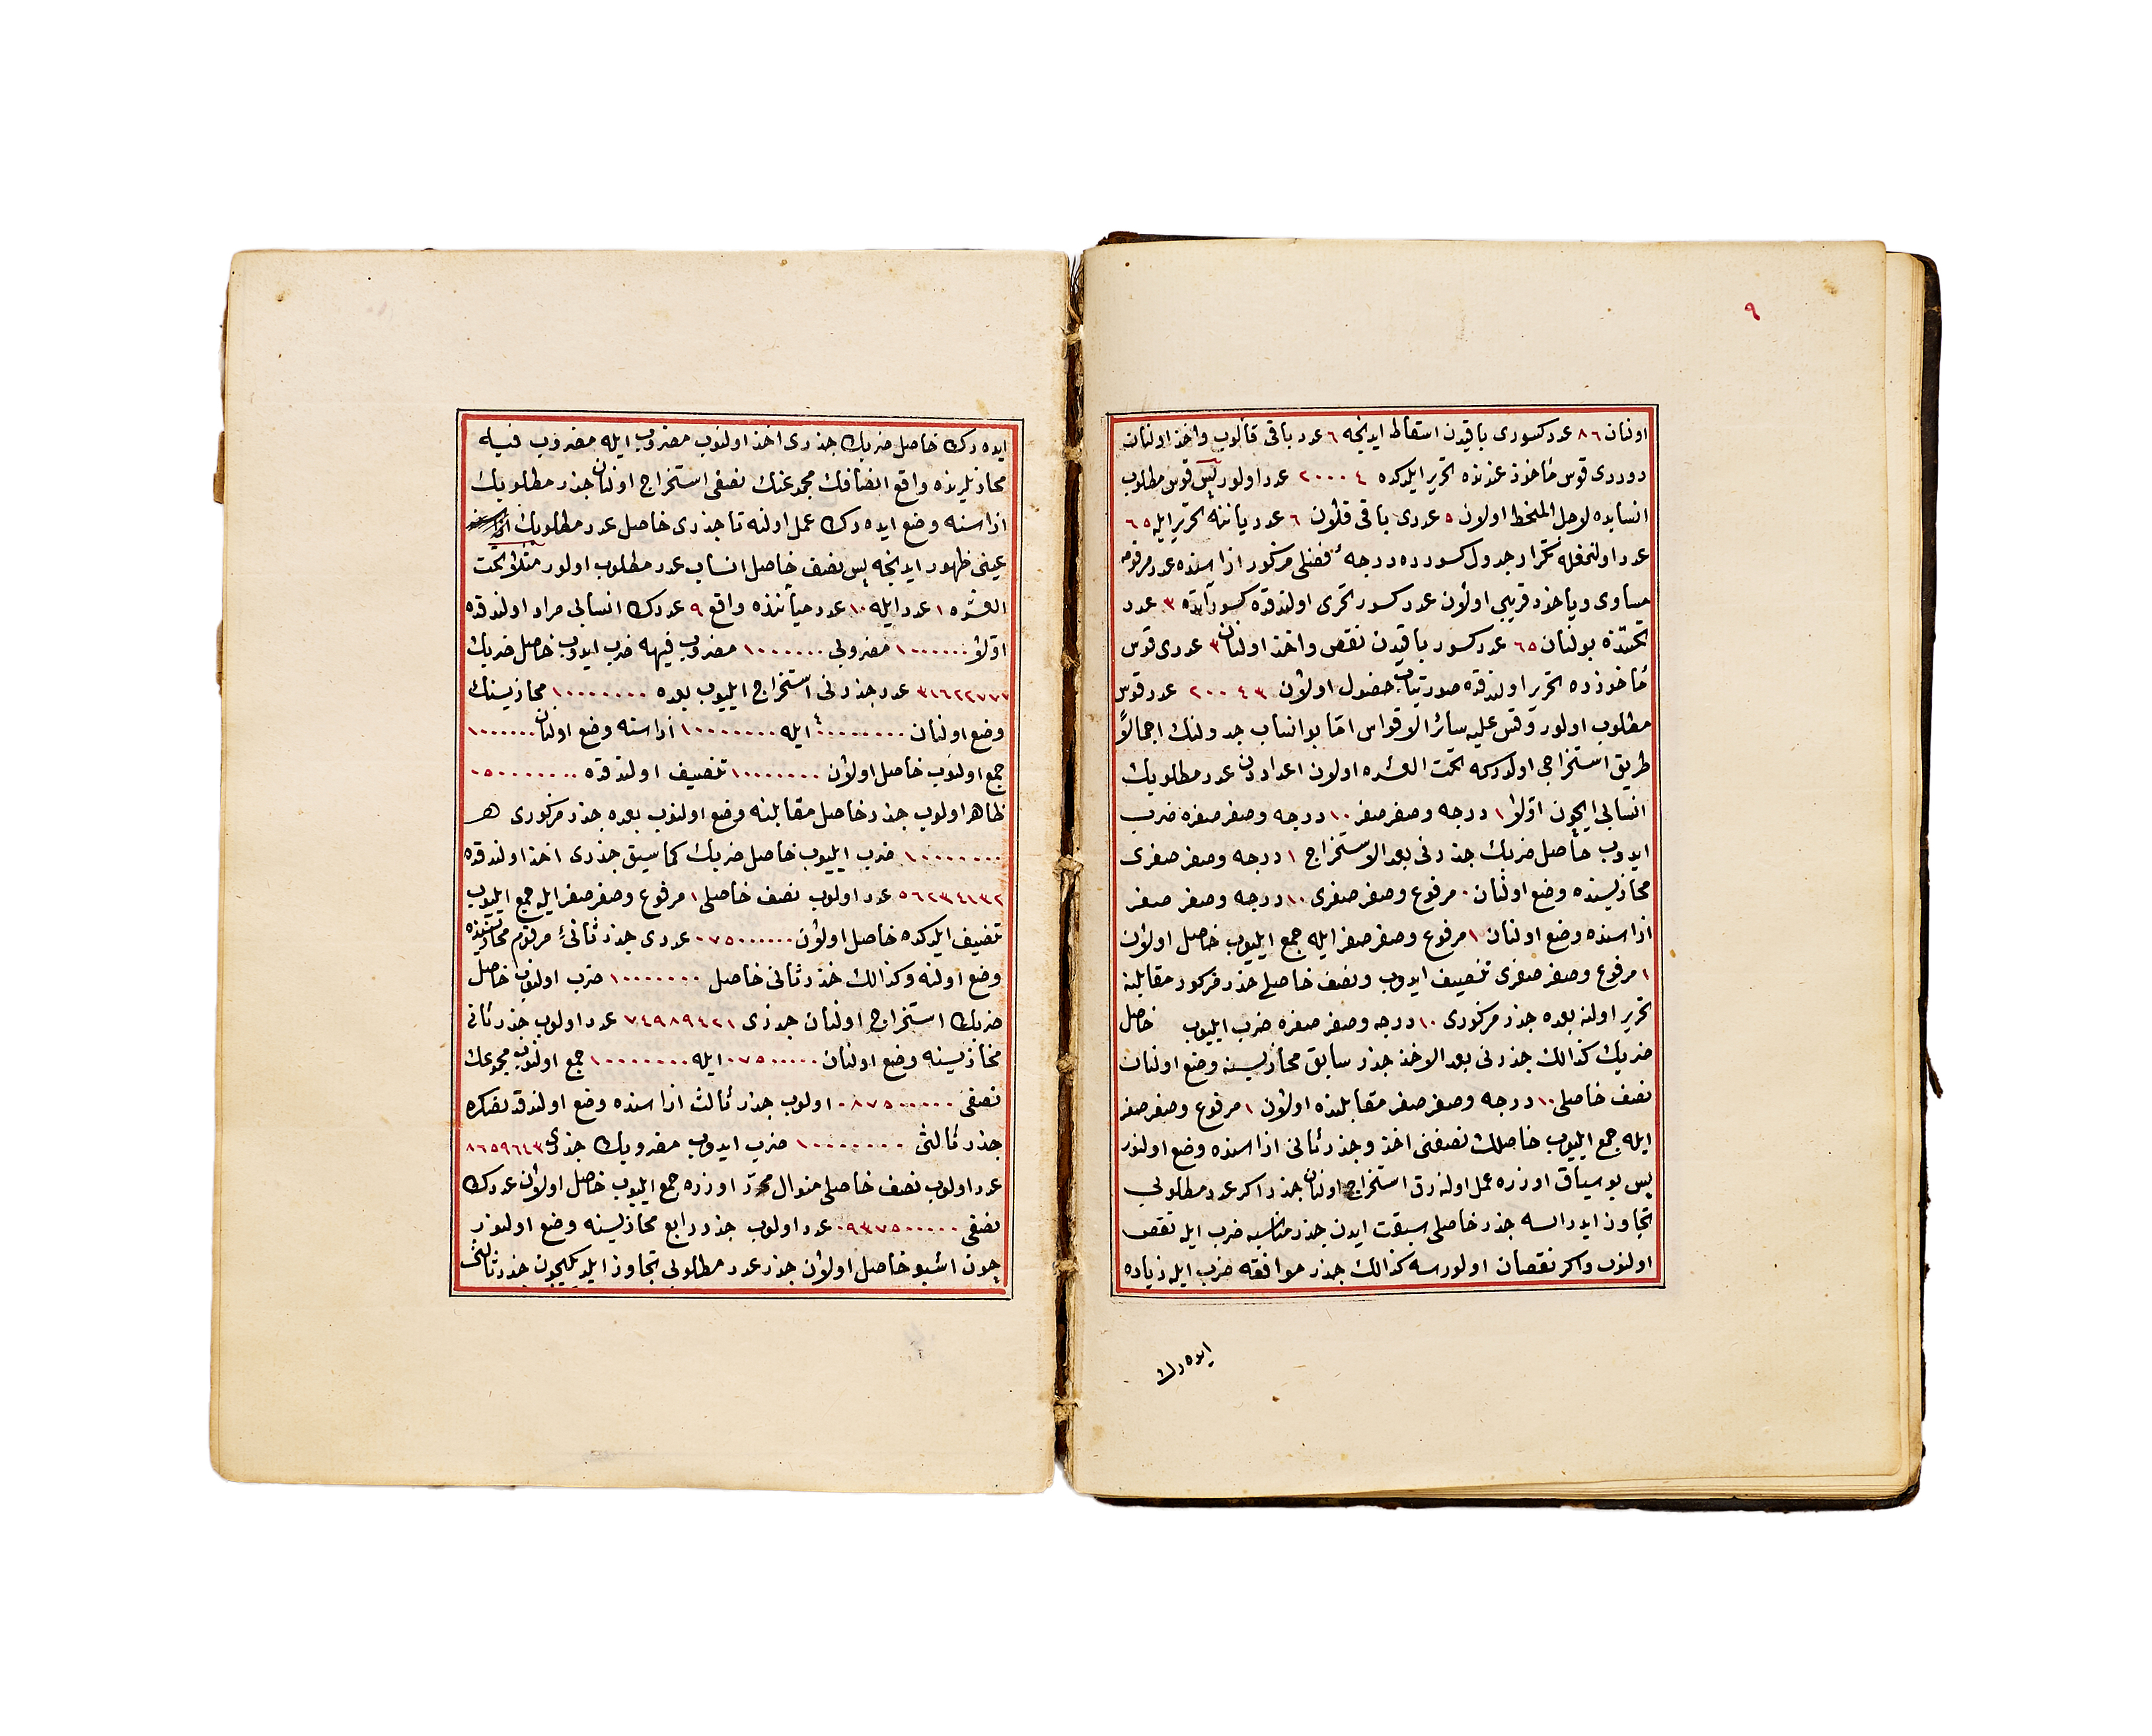 ٩
اولنان ٨٦ عدد كسورى باقيدن اسقاط ايدنجه ٦ عدد باقى قالوب واخذ اولنان
دوردى قوس مأخوذ عندنده تحرير ايلدكده ٢٠٠٠٤ عدد اولور پس قوس مطلوب
انسابده لاجل المنحط اولان ٥ عددى باقى قلان ٦ عدد ياننه تحرير ايله ٦٥
عدد اولنمغله تكرار جدول كسورده درجهٔ فضلى مزكور ازاسنده عدد مرقومه
مساوى وياخود قريبى اولان عدد كسور تحرى اولندقده كسور ٣ عدد
تحتنده بولنان ٦٥ عدد كسور باقيدن نقص واخذ اولنان ٣ عددى قوس
مأخوذده تحرير اولندقده صورتياب حصول اولان ٢٠٠٤٣ عدد قوس
مطلوب اولور وقس عليه سائر الاقواس امّا بو انساب جدولنك اجمالاً
طريق استخراجى اولدركه تحت العشره اولان اعداددن عدد مطلوبك
انسابى ايچون اوّلا ١ درجه وصفر صفر ١٠ درجه وصفر صفره ضرب
ايدوب حاصل ضربك جذرنى بعد الاستخراج ١ درجه وصفر صفرى
محاذيسنده وضع اولنان ٠ مرفوع وصفر صفرى ١٠ درجه وصفر صفر
ازاسنده وضع اولنان ١ مرفوع وصفر صفر ايله جمع ايليوب حاصل اولان
١ مرفوع وصفر صفرى تنصيف ايدوب ونصف حاصلى جذر مزكور مقابلنه
تحرير اولنه بعده جذر مزكورى ١٠ درجه وصفر صفره ضرب ايليوب حاصل
ضربك كذالك جذرنى بعد الاخذ جذر سابق محاذيسنه وضع اولنان
نصف حاصلى ١٠ درجه وصفر صفر مقابلنده اولان ١ مرفوع وصفر صفر
ايله جمع ايليوب حاصلك نصفنى اخذ وجذر ثانى ازاسنده وضع اولنور
پس بو سياق اوزره عمل اولنه رق استخراج اولنان جذر اكر عدد مطلوبى
تجاوز ايدرسه جذر حاصلى سبقت ايدن جذر مناسبه ضرب ايله نقص
اولنوب واكر نقصان اولورسه كذالك جذر موافقه ضرب ايله زياده
ايده رك
ايده رك حاصل ضربك جذرى اخذ اولنوب مضروب ايله مضروب فيه
محاذيلرنده واقع انصافك مجموعنك نصفى استخراج اولنان جذر مطلوبك
ازاسنه وضع ايده رك عمل اولنه تا جذرى حاصل عدد مطلوبك
عينى ظهور ايدنجه پس نصف حاصل انساب عدد مطلوب اولور مثلا تحت
العشره ١ عدد ايله ١٠ عدد ميأننده واقع ٩ عددك انسابى مراد اولندقده
اوّلا ١٠٠٠٠٠٠ مضروبى ١٠٠٠٠٠٠٠ مضروب فيهه ضرب ايدوب حاصل ضربك
٣١٦٢٢٧٧٧ عدد جذرنى استخراج ايليوب بعده ١٠٠٠٠٠٠٠٠ محاذيسنك
وضع اولنان ٠٠٠٠٠٠٠٠٠ ايله ١٠٠٠٠٠٠٠٠ ازاسنه وضع اولنان ١٠٠٠٠٠٠
جمع اولنوب حاصل اولان ١٠٠٠٠٠٠٠٠ تنصيف اولندقده ٠٥٠٠٠٠٠٠٠
ظاهر اولوب جذر حاصل مقابلنه وضع اولنوب بعده جذر مزكورى
١٠٠٠٠٠٠٠٠ ضرب ايليوب حاصل ضربك كما سبق جذرى اخذ اولندقده
٥٦٢٣٤١٣٢ عدد اولوب نصف حاصلى ١ مرفوع وصفر صفر ايله جمع ايليوب
تنصيف ايلدكده حاصل اولان ٠٧٥٠٠٠٠٠٠ عددى جذر ثانىٔ مرقوم محاذيسنده
وضع اولنه وكذالك جذر ثانى حاصل ١٠٠٠٠٠٠٠ ضرب اولنوب حاصل
ضربك استخراج اولنان جذرى ٧٤٩٨٩٤٢١ عدد اولوب جذر ثانى
محاذيسنه وضع اولنان ٠٧٥٠٠٠٠٠ ايله ١٠٠٠٠٠٠٠٠ جمع اولنوب مجموعك
نصفى ٠٨٧٥٠٠٠٠٠ اولوب جذر ثالث ازاسنده وضع اولندقدنصكره
جذر ثالثى ١٠٠٠٠٠٠٠٠ ضرب ايدوب مضروبك جذرى ٨٦٥٩٦٤٣
عدد اولوب نصف حاصلى منوال محرّر اوزره جمع ايليوب حاصل اولان عددك
نصفى ٠٩٣٧٥٠٠٠٠٠ عدد اولوب جذر رابع محاذيسنه وضع اولنور
چون اشبو حاصل اولان جذر عدد مطلوبى تجاوز ايلديكيچون جذر ثالثى